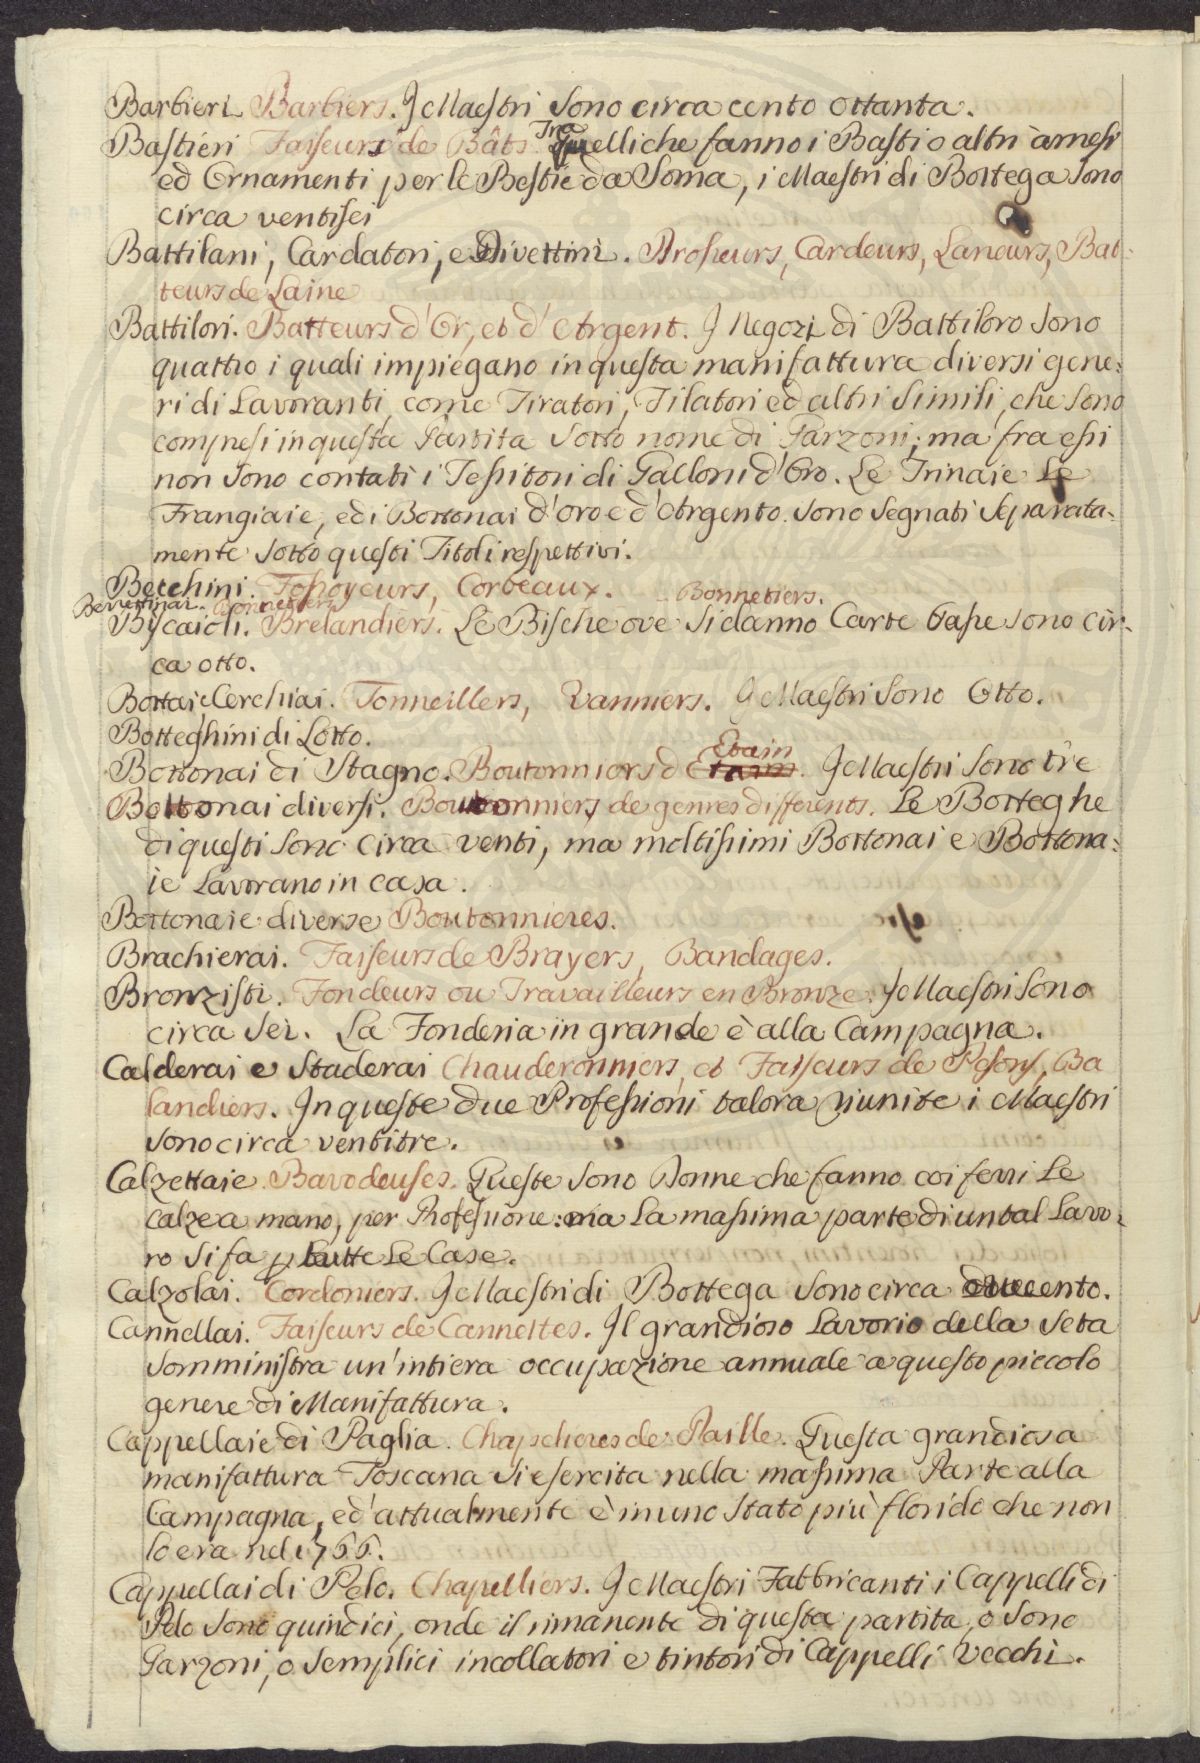 Barbieri. Barbiers. I Maestri sono circa cento ottanta.
Bastieri Faiseurs de Bâts. Tra Quelli che fanno i Basti o altri arnesi
ed Ornamenti per le Bestie da Soma, i Maestri di Bottega sono
circa ventisei
Battilani, Cardatori, e Divettini. Drosseurs, Cardeurs, Laneurs, Bat-
teurs de Laine
Battilori. Batteurs d'Or, et d'Argent. I Negozi di Battiloro sono
quattro i quali impiegano in questa manifattura diversi gene:
ri di Lavoranti, come Tiratori, Filatori ed altri simili, che sono
compresi in questa Partita sotto nome di Garzoni; ma fra essi
non sono contati i Tessitori di Galloni d'Oro. Le Trinaie Le
Frangiaie, ed i Bottonai d'oro e d'Argento. sono segnati separata-
mente sotto questi Titoli respettivi.
Becchini. Fossoyeurs, Corbeaux.
Berrettinai. Bonnetiers Bonnetiers.
Biscaioli. Brelandiers. Le Bische ove si danno Carte basse sono cir-
ca otto.
Bottai, e Cerchiai. Tonneilllers, Vanniers. I Maestri sono Otto.
Botteghini di Lotto.
Bottonai di Stagno. Boutonniers d'Etain. Etain I Maestri sono tre
Bottonai diversi. Boutonniers de genres differents. Le Botteghe
di questi sono circa venti, ma moltissimi Bottonai e Bottona:
ie Lavorano in casa.
Bottonaie diverse Boutonnieres.
Brachierai. Faiseurs de Brayers, Bandages.
Bronzisti. Fondeurs ou Travailleurs en Bronze. I Maestri sono
circa sei. La Fonderia in grande è alla Campagna.
Calderai e Staderai Chauderonniers, et Faiseurs de Pesons, Ba
landiers. In queste due Professioni talora riunite i Maestri
sono circa ventitre.
Calzettaie. Ravodeuses. Queste sono Donne che fanno coi ferri Le
calze a mano, per Professione: ma La massima parte di un tal Lavo-
ro si fa p tutte Le Case.
Calzolai. Cordoniers. I Maestri di Bottega sono circa duecento.
Cannellai. Faiseurs de Cannettes. Il grandioso Lavorio della Seta
somministra un'intiera occupazione annuale a questo piccolo
genere di Manifattura.
Cappellaie di Paglia. Chapelieres de Paille. Questa grandiosa
manifattura Toscana si esercita nella massima Parte alla
Campagna, ed attualmente è in uno stato più florido che non
lo era nel 1766.
Cappellai di Pelo. Chapelliers. I Maestri Fabbricanti i Cappelli di
Pelo sono quindici, onde il rimanente di questa partita, o sono
Garzoni, o semplici incollatori e tintori di Cappelli vecchi.